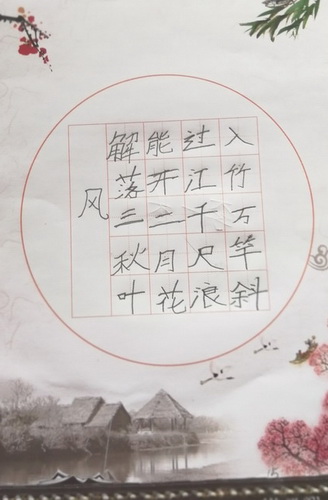 风
解落三秋叶
能开二月花
过江千尺浪
入竹万竿斜
15